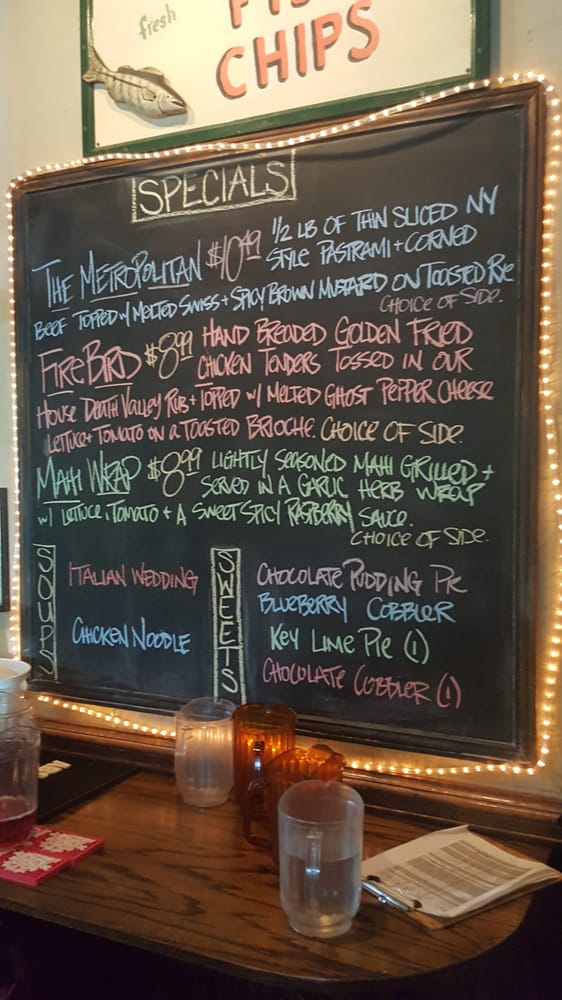 fresh
CHIPS
SPECIALS
THE METROPOLITAN $10.49 1/2 LB OF THIN SLICED NY
STYLE PASTRAMI + CORNED
BEEF TOPPED W/ MELTED SWISS + SPICY BROWN MUSTARD ON TOASTED RYE
CHOICE OF SIDE.
FIREBIRD $8.99 HAND BREADED GOLDEN FRIED
CHICKEN TENDERS TOSSED IN OUR
HOUSE DEATH VALLEY RUB + TOPPED W/ MELTED GHOST PEPPER CHEESE
LETTUCE + TOMATO ON A TOASTED BRIOCHE. CHOICE OF SIDE.
MAHI WRAP $8.99 LIGHTLY SEASONED MAHI GRILLED +
SERVED IN A GARLIC HERB WRAP
W/ LETTUCE, TOMATO + A SWEET SPICY RASPBERRY SAUCE.
CHOICE OF SIDE.
SOUPS
ITALIAN WEDDING
CHICKEN NOODLE
SWEETS
CHOCOLATE PUDDING PIE
BLUEBERRY COBBLER
KEY LIME PIE (1)
CHOCOLATE COBBLER (1)